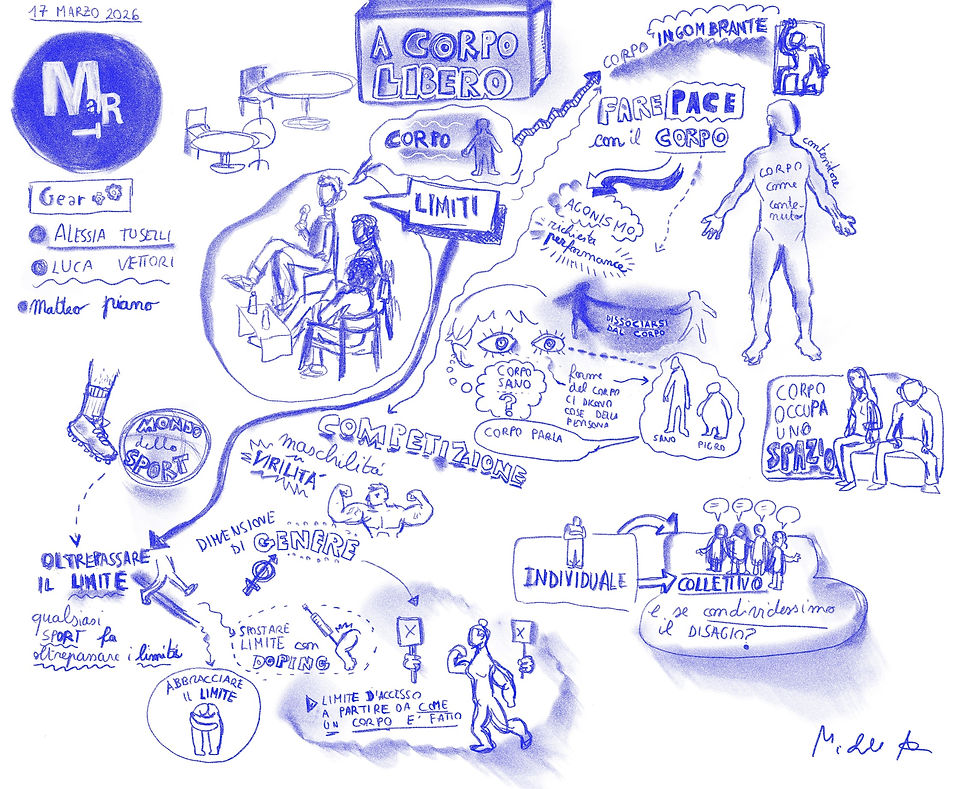 17 MARZO 2026
MaRT
Gear
ALESSIA TUSELLI
LUCA VETTORI
Matteo piano
A CORPO
LIBERO
CORPO
LIMITI
CORPO INGOMBRANTE
FARE PACE
con il CORPO
AGONISMO
richiesta
performance
DISSOCIARSI
DAL CORPO
contenitore
CORPO
come
conte-
nuto
CORPO
SANO
?
forme
del CORPO
CI DICONO
COSE DELLA
PERSONA
CORPO PARLA
SANO
PIGRO
CORPO
OCCUPA
UNO
SPAZIO
COMPETIZIONE
maschilità
VIRILITÀ
MONDO
dello
SPORT
DIMENSIONE
DI GENERE
OLTREPASSARE
IL LIMITE
qualsiasi
SPORT fa
oltrepassare i limiti
SPOSTARE
LIMITE con
DOPING
ABBRACCIARE
IL LIMITE
X
X
LIMITE D'ACCESSO
A PARTIRE DA COME
UN CORPO E' FATTO
INDIVIDUALE
COLLETTIVO
e se condividessimo
il DISAGIO?